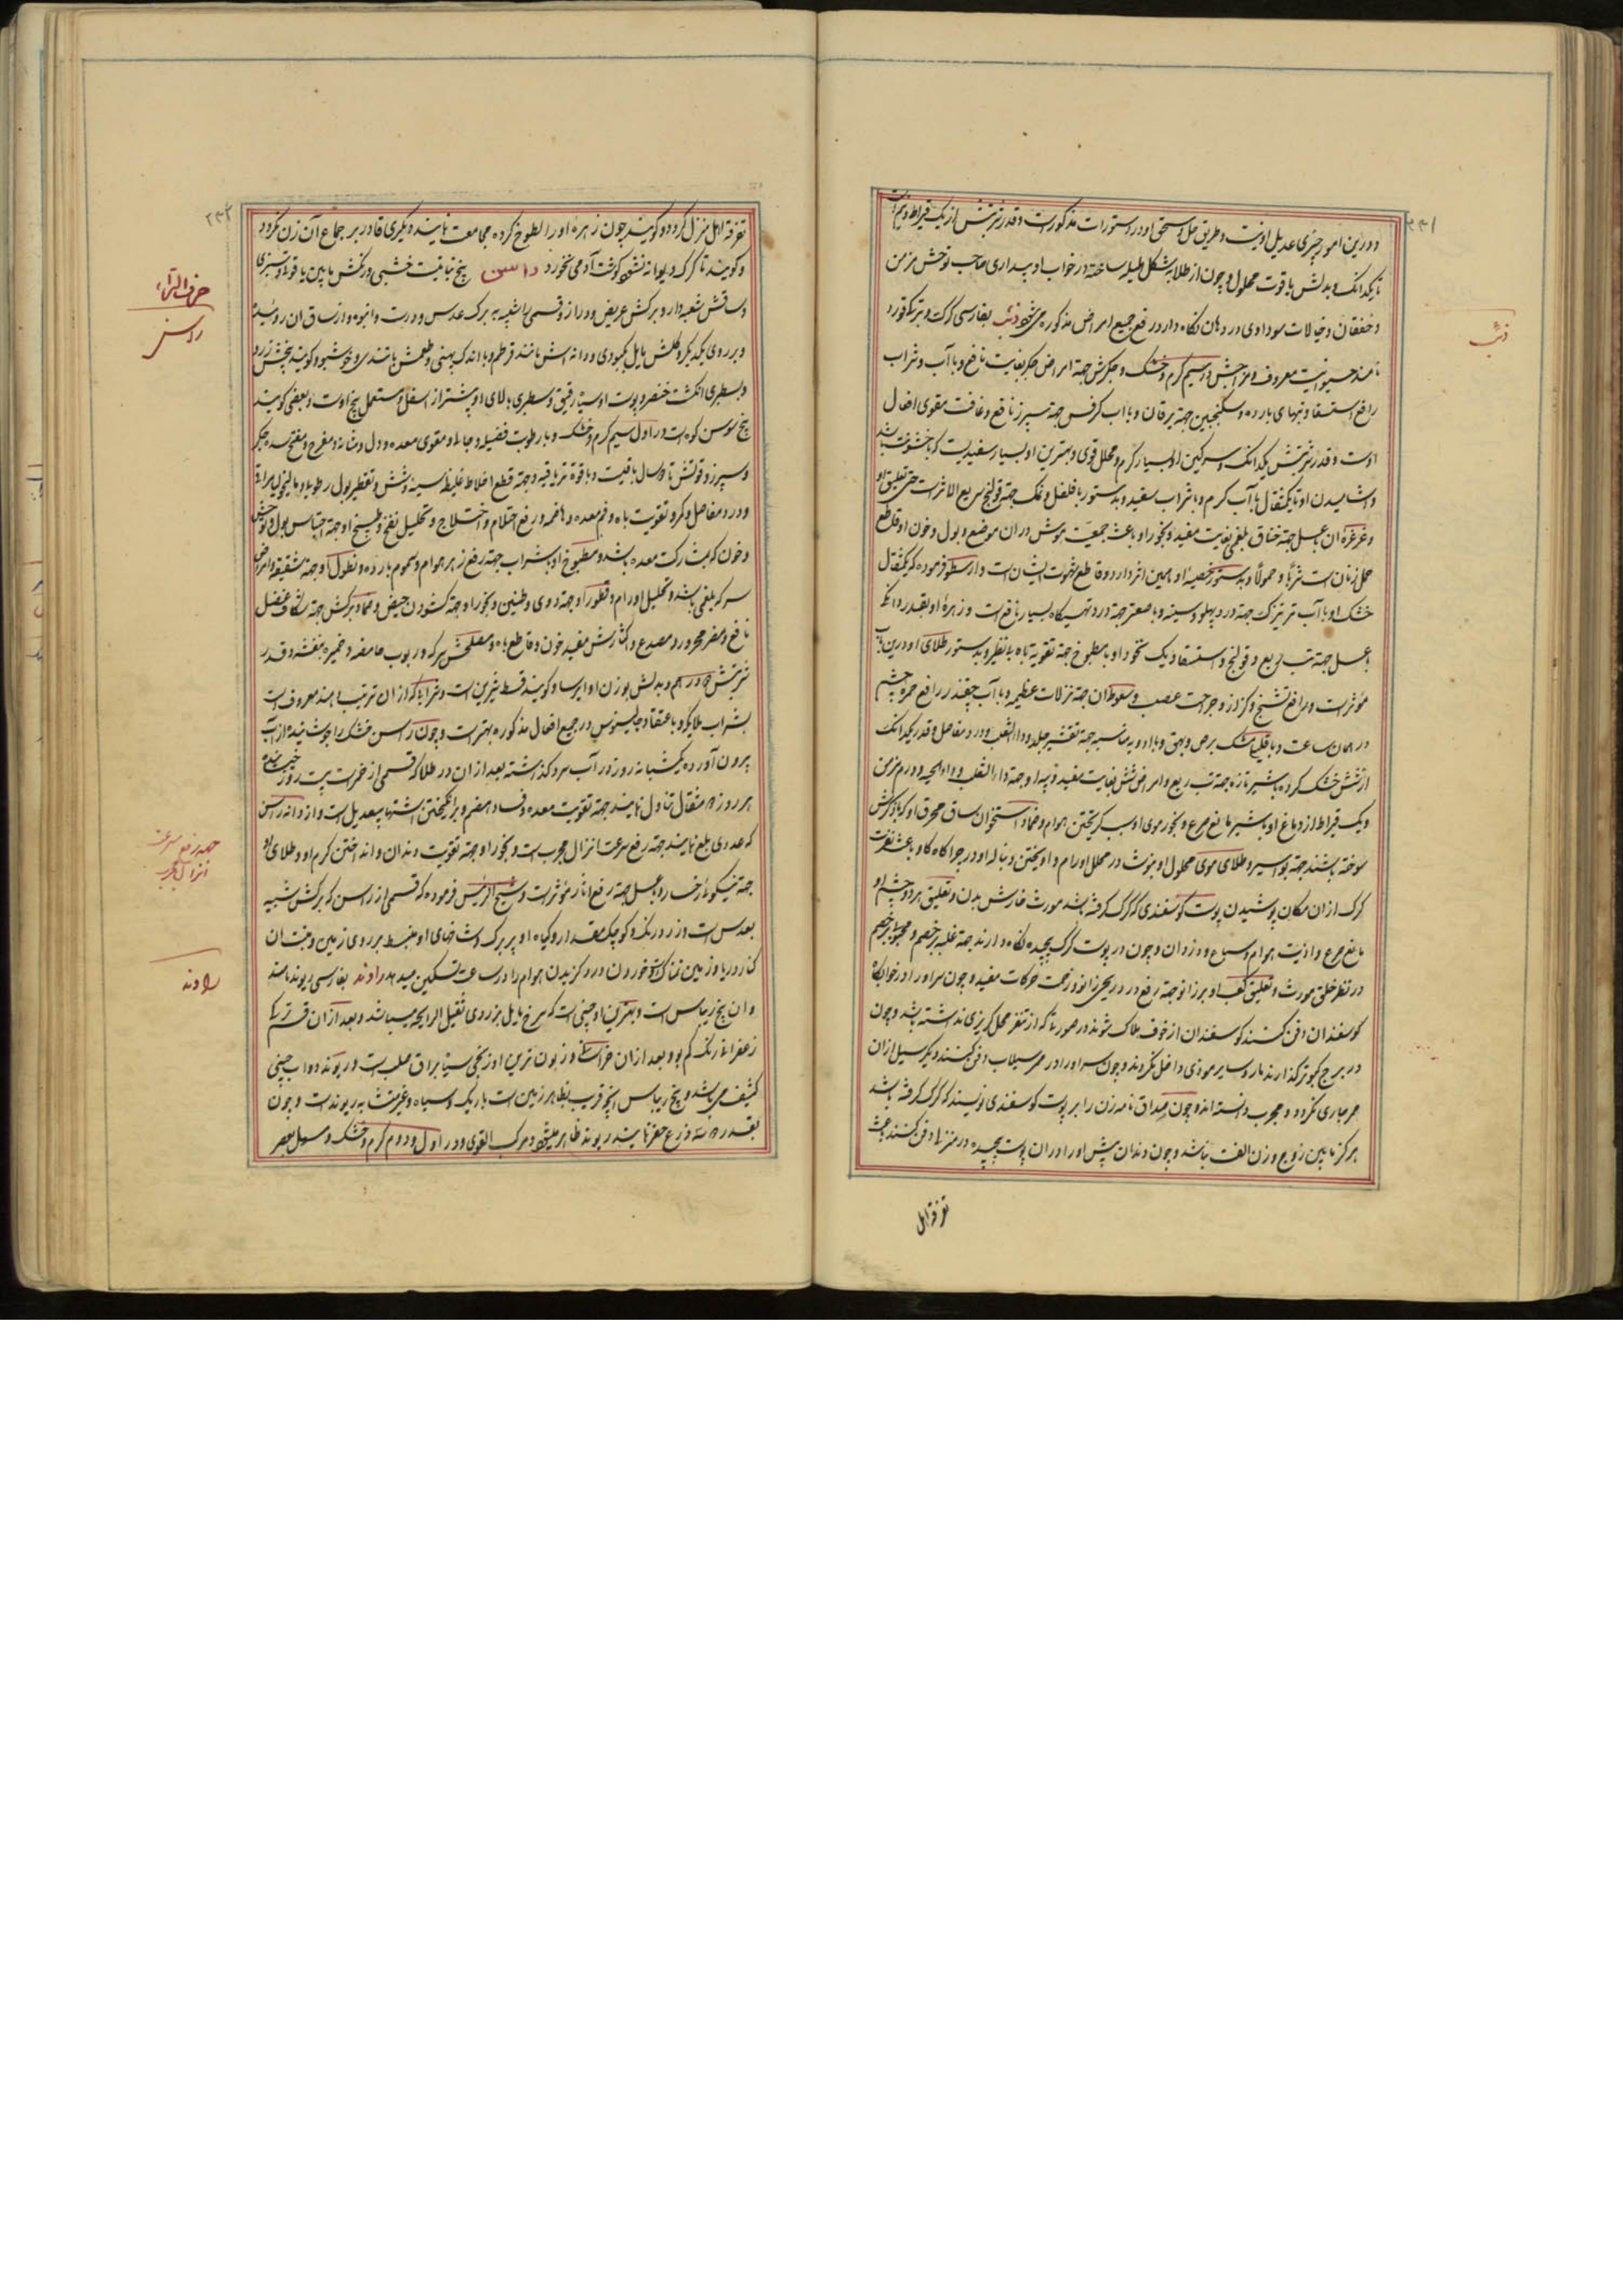 ۲۳۱
و درین امور چیزی عدیل او نیست و طریق حل و سحق او در دستورات مذکور است و قدر شربتش از یک قیراط و نیم است
تا یکدانک و بدلش یاقوت محلول و چون از طلا به شکل هلیله ساخته در خواب و بیداری صاحب توحش مزمن
و خفقان و خیالات سوداوی در دهان نگاه دارد رفع جمیع امراض مذکوره می شود ذئب بفارسی گرگ و بترکی قورد
نامند حیوانیست معروف و مزاجش در سیم گرم و خشک و جگرش جهة امراض جگر بغایت نافع و با آب و شراب
رافع استسقا و تبهای بارده و سکنجبین جهة یرقان و با آب کرفس جهة سپرز نافع و غافث مقوی افعال
اوست و قدر شربتش یکدانک و سرگین او بسیار گرم و محلل قوی و بهترین او بسیار سفیدیست که با خشونت باشد
و آشامیدن او تا یکمثقال با آب گرم و با شراب سفید و بدستور با فلفل و نمک جهة قولنج سریع الاثر است حتی تعلیق او
و غرغره آن با عسل جهة خناق بلغمی بغایت مفید و بخور او باعث جمعیت موش در آن موضع و بول و خون او قاطع
حمل زنان است شربا و حمولا و بدستور خصیه او همین اثر دارد و قاطع شهوت ایشان است و ارسطو فرموده که یکمثقال
خشک او با آب ترتیزک جهة درد پهلو و سینه و با صعتر جهة درد تهیگاه بسیار نافع است و زهره او بقدر دانک
با عسل جهة تب ربع و قولنج و استسقا و یک نخود او با مطبوخ جهة تقویة باه بی نظیر و بدستور طلای او درین باب
مؤثر است و رافع تشنج و کزاز و جراحت عصب و سعوط آن جهة نزلات عظیمه و با آب چقندر رافع حمره چشم
در همان ساعت و با قلیا مشک برص و بهق و با ادویه مناسبه جهة تقشیر جلد و داء الثعلب و درد مفاصل و قدر یکدانک
از شش خشک کرده با شیر تازه جهة تب ربع و امراض شش بغایت مفید و پیه او جهة داء الثعلب و داء الحیه و ورم مزمن
و یک قیراط از دماغ او با شیر مانع صرع و بخور موی او سبب گریختن هوام و ضماد استخوان ساق محرق او که با کرش
سوخته باشند جهة بواسیر و طلای موی محلول او بنوشادر محلل اورام و آویختن دنباله او در چراگاه گاو باعث نفرت
گرگ از آن مکان پوشیدن پوست گوسفندی که گرگ گرفته باشد مورث خارش بدن و تعلیق هر دو چشم او
مانع صرع و اذیت هوام و سباع و دزدان و چون در پوست گرگ پیچیده نگاه دارند جهة غلبه بر خصم و محبوبیت
در نظر خلق مورث و تعلیق کعب او بر زانو جهة رفع درد ریحی زانو و زحمت حرکات مفید و چون سر او را در خوابگاه
گوسفندان دفن کنند گوسفندان از خوف هلاک شوند در صورتی که از تنفر محل گریزی نداشته باشد و چون
در برج کبوتر گذارند مار و سایر موذی داخل نگردند و چون سر او را در ممر سیلاب دفن کنند دیگر سیل از آن
ممر جاری نگردد و مجرب دانسته اند و چون صداق نامه زن را بر پوست گوسفندی نویسند که گرگ گرفته باشد
هرگز مابین زوج و زن الفت نباشد و چون دندان پیش او را در آن پوست پیچیده در منزلی دفن کنند باعث
تفرقه اهل
ذئب
۲۳۲
تفرقه اهل منزل گردد و گویند چون زهره او را لطوخ کرده مجامعت نمایند دیگری قادر بر جماع آن زن نگردد
و گویند تا گرگ دیوانه نشود گوشت آدمی نخورد راسن بیخ نباتیست خشبی و رنگش مابین یاقوتی و سبزی
و ساقش شعبه دار و برگش عریض و دراز و قسمی را شبیه به برگ عدس و درشت و انبوه و از ساق آن روئیده
و بر روی یکدیگر و گلش مایل بکبودی و دانه اش مانند قرطم و با اندک پهنی و طعمش با تندی و خوشبو و گویند بیخش زرد
و بسطبری انگشت خنصر و پوست او سیاه رقیق و سطبری بالای او بیشتر از اسفل و مستعمل بیخ اوست و بعضی گویند
بیخ سوسن کوهی است در اول سیم گرم و خشک و با رطوبت فضلیه و جالی و مقوی معده و دل و مثانه و مفرح و مفتح سده جگر
و سپرز و قوتش تا دو سال باقیست و با قوة تریاقیه و جهة قطع اخلاط غلیظ سینه و شش و تقطیر بول رطوبی و مالیخولیا مراقی
و درد مفاصل و کمر و تقویت باه و فم معده و هاضمه و رفع احتلام و اختلاج و تحلیل نفخ و طبیخ او جهة احتباس بول و حیض
و خون که بمشارکت معده باشد و مطبوخ او با شراب جهة رفع زهر هوام و سموم بارده و نطول او جهة شقیقه و امراض
سر که بلغمی باشد و تحلیل اورام و قطور او جهة دوی و طنین و بخور او جهة گشودن حیض و ضماد برگش جهة شکاف عضل
نافع و مضر محرور و مصدع و اکثارش مفسد خون و قاطع باه و مصلحش سرکه و ربوب حامضه و خمیره بنفشه و قدر
شربتش دو درهم و بدلش بوزن او ایرسا و گویند قسط شیرین است و شرابی که از آن ترتیب دهند معروف است
بشراب ملایکه و باعتقاد جالینوس در جمیع افعال مذکوره بهتر است و چون راسن خشک را جوشانیده از آب
بیرون آورده یکشبانه روز در آب سرد گذاشته بعد از آن در طلا که قسمی از خمر است بیست روز خیسانند
هر روز ۳ مثقال تناول نمایند جهة تقویت معده و فساد هضم و برانگیختن اشتها بیعدیل است و از دانه راسن
که عددی بلع نمایند جهة رفع سرعت انزال مجرب است و بخور او جهة تقویت دندان و انداختن کرم او و طلای او
جهة نیکوئی رخسار و با عسل جهة رفع آثار مؤثر است و شیخ الرئیس فرموده که قسمی از راسن که برگش شبیه
بعدس است و زرد رنگ و کوچک مقدار و گیاه او پر برگ و شاخهای او منبسط بر روی زمین و منبت آن
کنار دریا و زمین نمناک است خوردن درد گزیدن هوام را در ساعت تسکین میدهد راوند بفارسی ریوند نامند
و آن بیخ ریباس است و بهترین او چینی است که سرخ مایل بزردی ثقیل الرایحه میباشد و بعد از آن قسم ترکی
زعفرانی رنگ کم بو و بعد از آن خراسانی و زبون ترین او زنجی سیاه براق صلب است و ریوند دواب چینی
کثیف می باشد و بیخ ریباس آنچه قریب بظاهر زمین است باریک و سیاه و غیر متشابه ریوند است و چون
بقدر سه ذرع حفر نمایند ریوند ظاهر میشود و مرکب القوی و در اول دوم گرم و خشک و مسهل
حرف الراء
راسن
جهة رفع سرعت
انزال مجرب
راوند